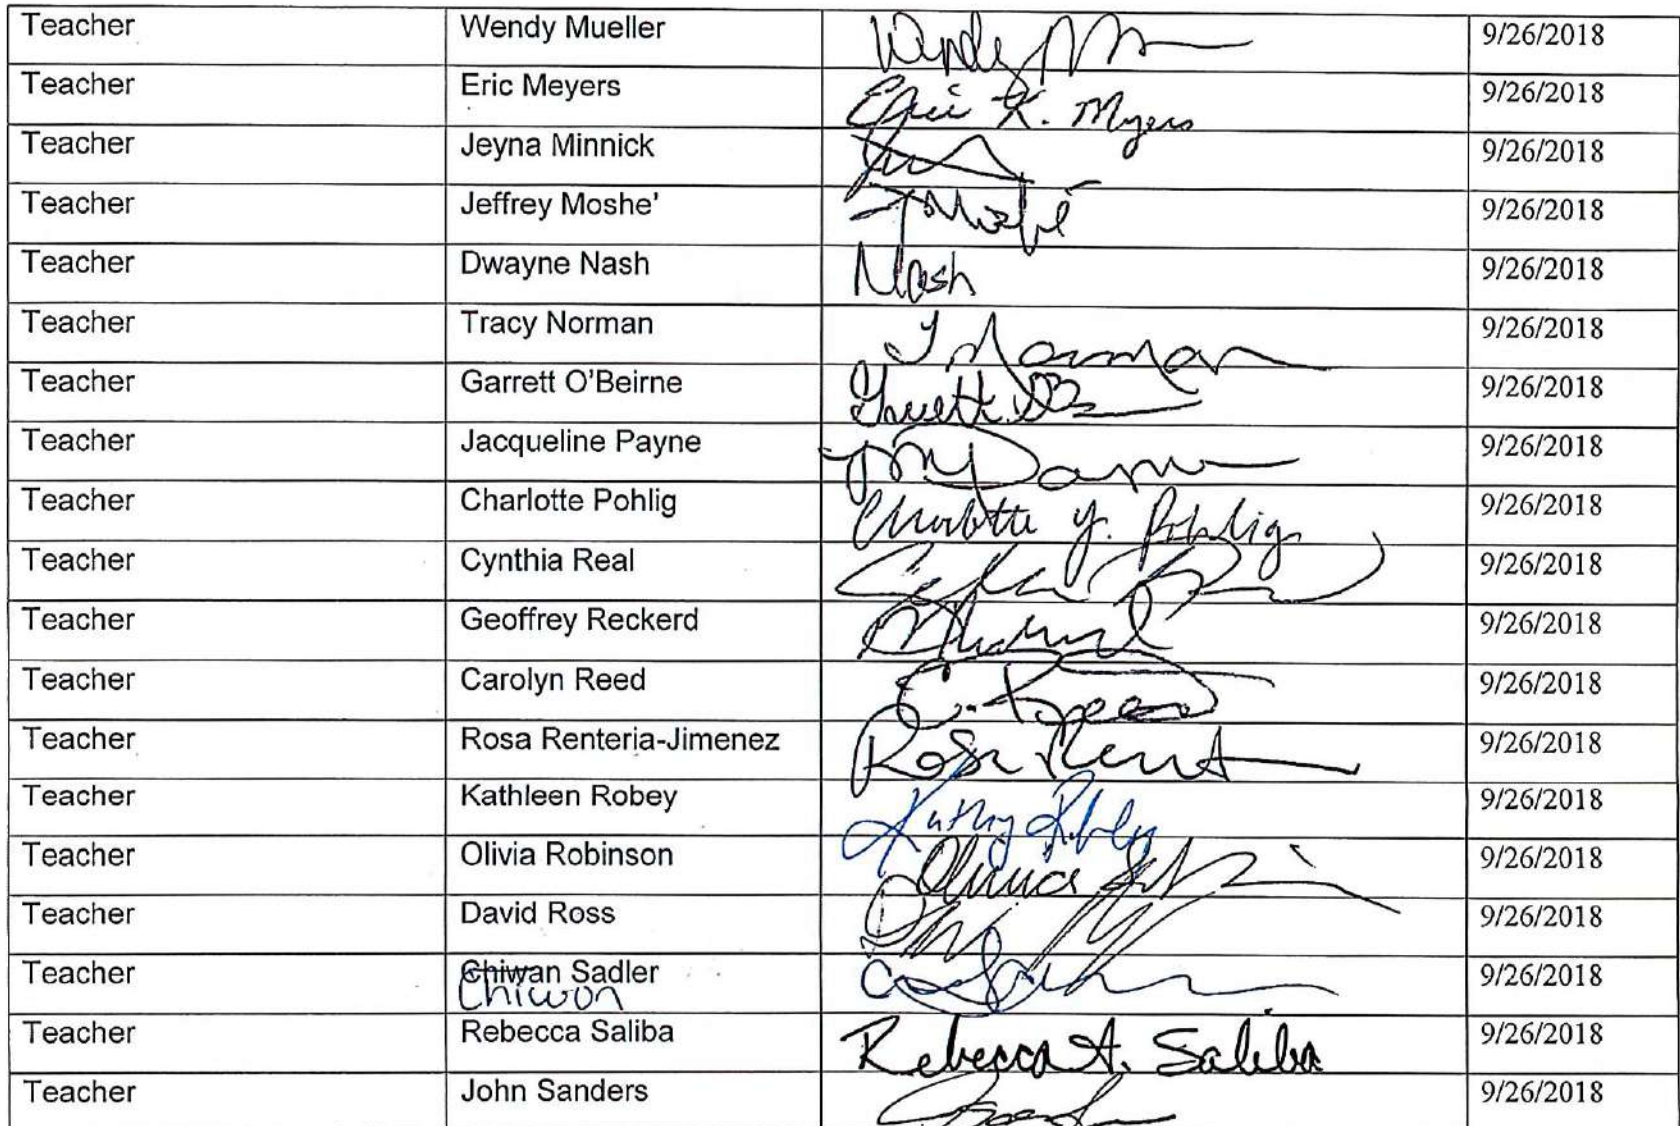 Teacher Wendy Mueller Wendy M 9/26/2018
Teacher Eric Meyers Eric K. Myers 9/26/2018
Teacher Jeyna Minnick 9/26/2018
Teacher Jeffrey Moshe' JMoshé 9/26/2018
Teacher Dwayne Nash Nash 9/26/2018
Teacher Tracy Norman T Norman 9/26/2018
Teacher Garrett O'Beirne Garrett OB 9/26/2018
Teacher Jacqueline Payne 9/26/2018
Teacher Charlotte Pohlig Charlotte y. Pohlig 9/26/2018
Teacher Cynthia Real 9/26/2018
Teacher Geoffrey Reckerd 9/26/2018
Teacher Carolyn Reed C. Reed 9/26/2018
Teacher Rosa Renteria-Jimenez Rosa Rent 9/26/2018
Teacher Kathleen Robey Kathy Robey 9/26/2018
Teacher Olivia Robinson Olivia 9/26/2018
Teacher David Ross 9/26/2018
Teacher Chiwan Sadler 9/26/2018
Chiwon
Teacher Rebecca Saliba Rebecca A. Saliba 9/26/2018
Teacher John Sanders 9/26/2018